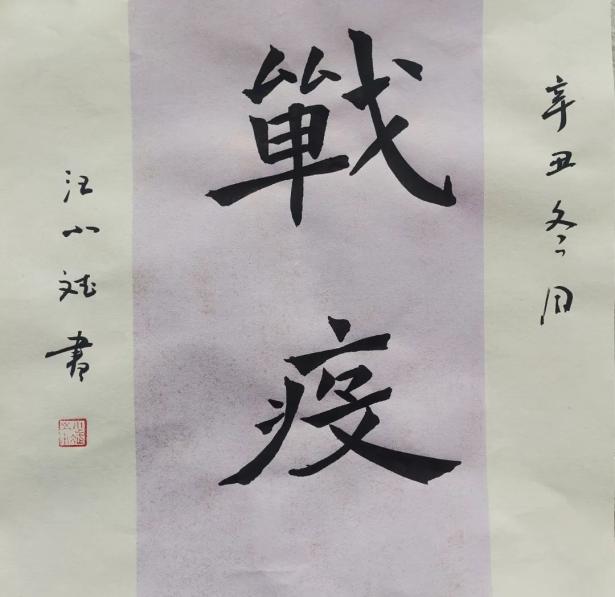 辛丑冬月
戰疫
汪小斌書